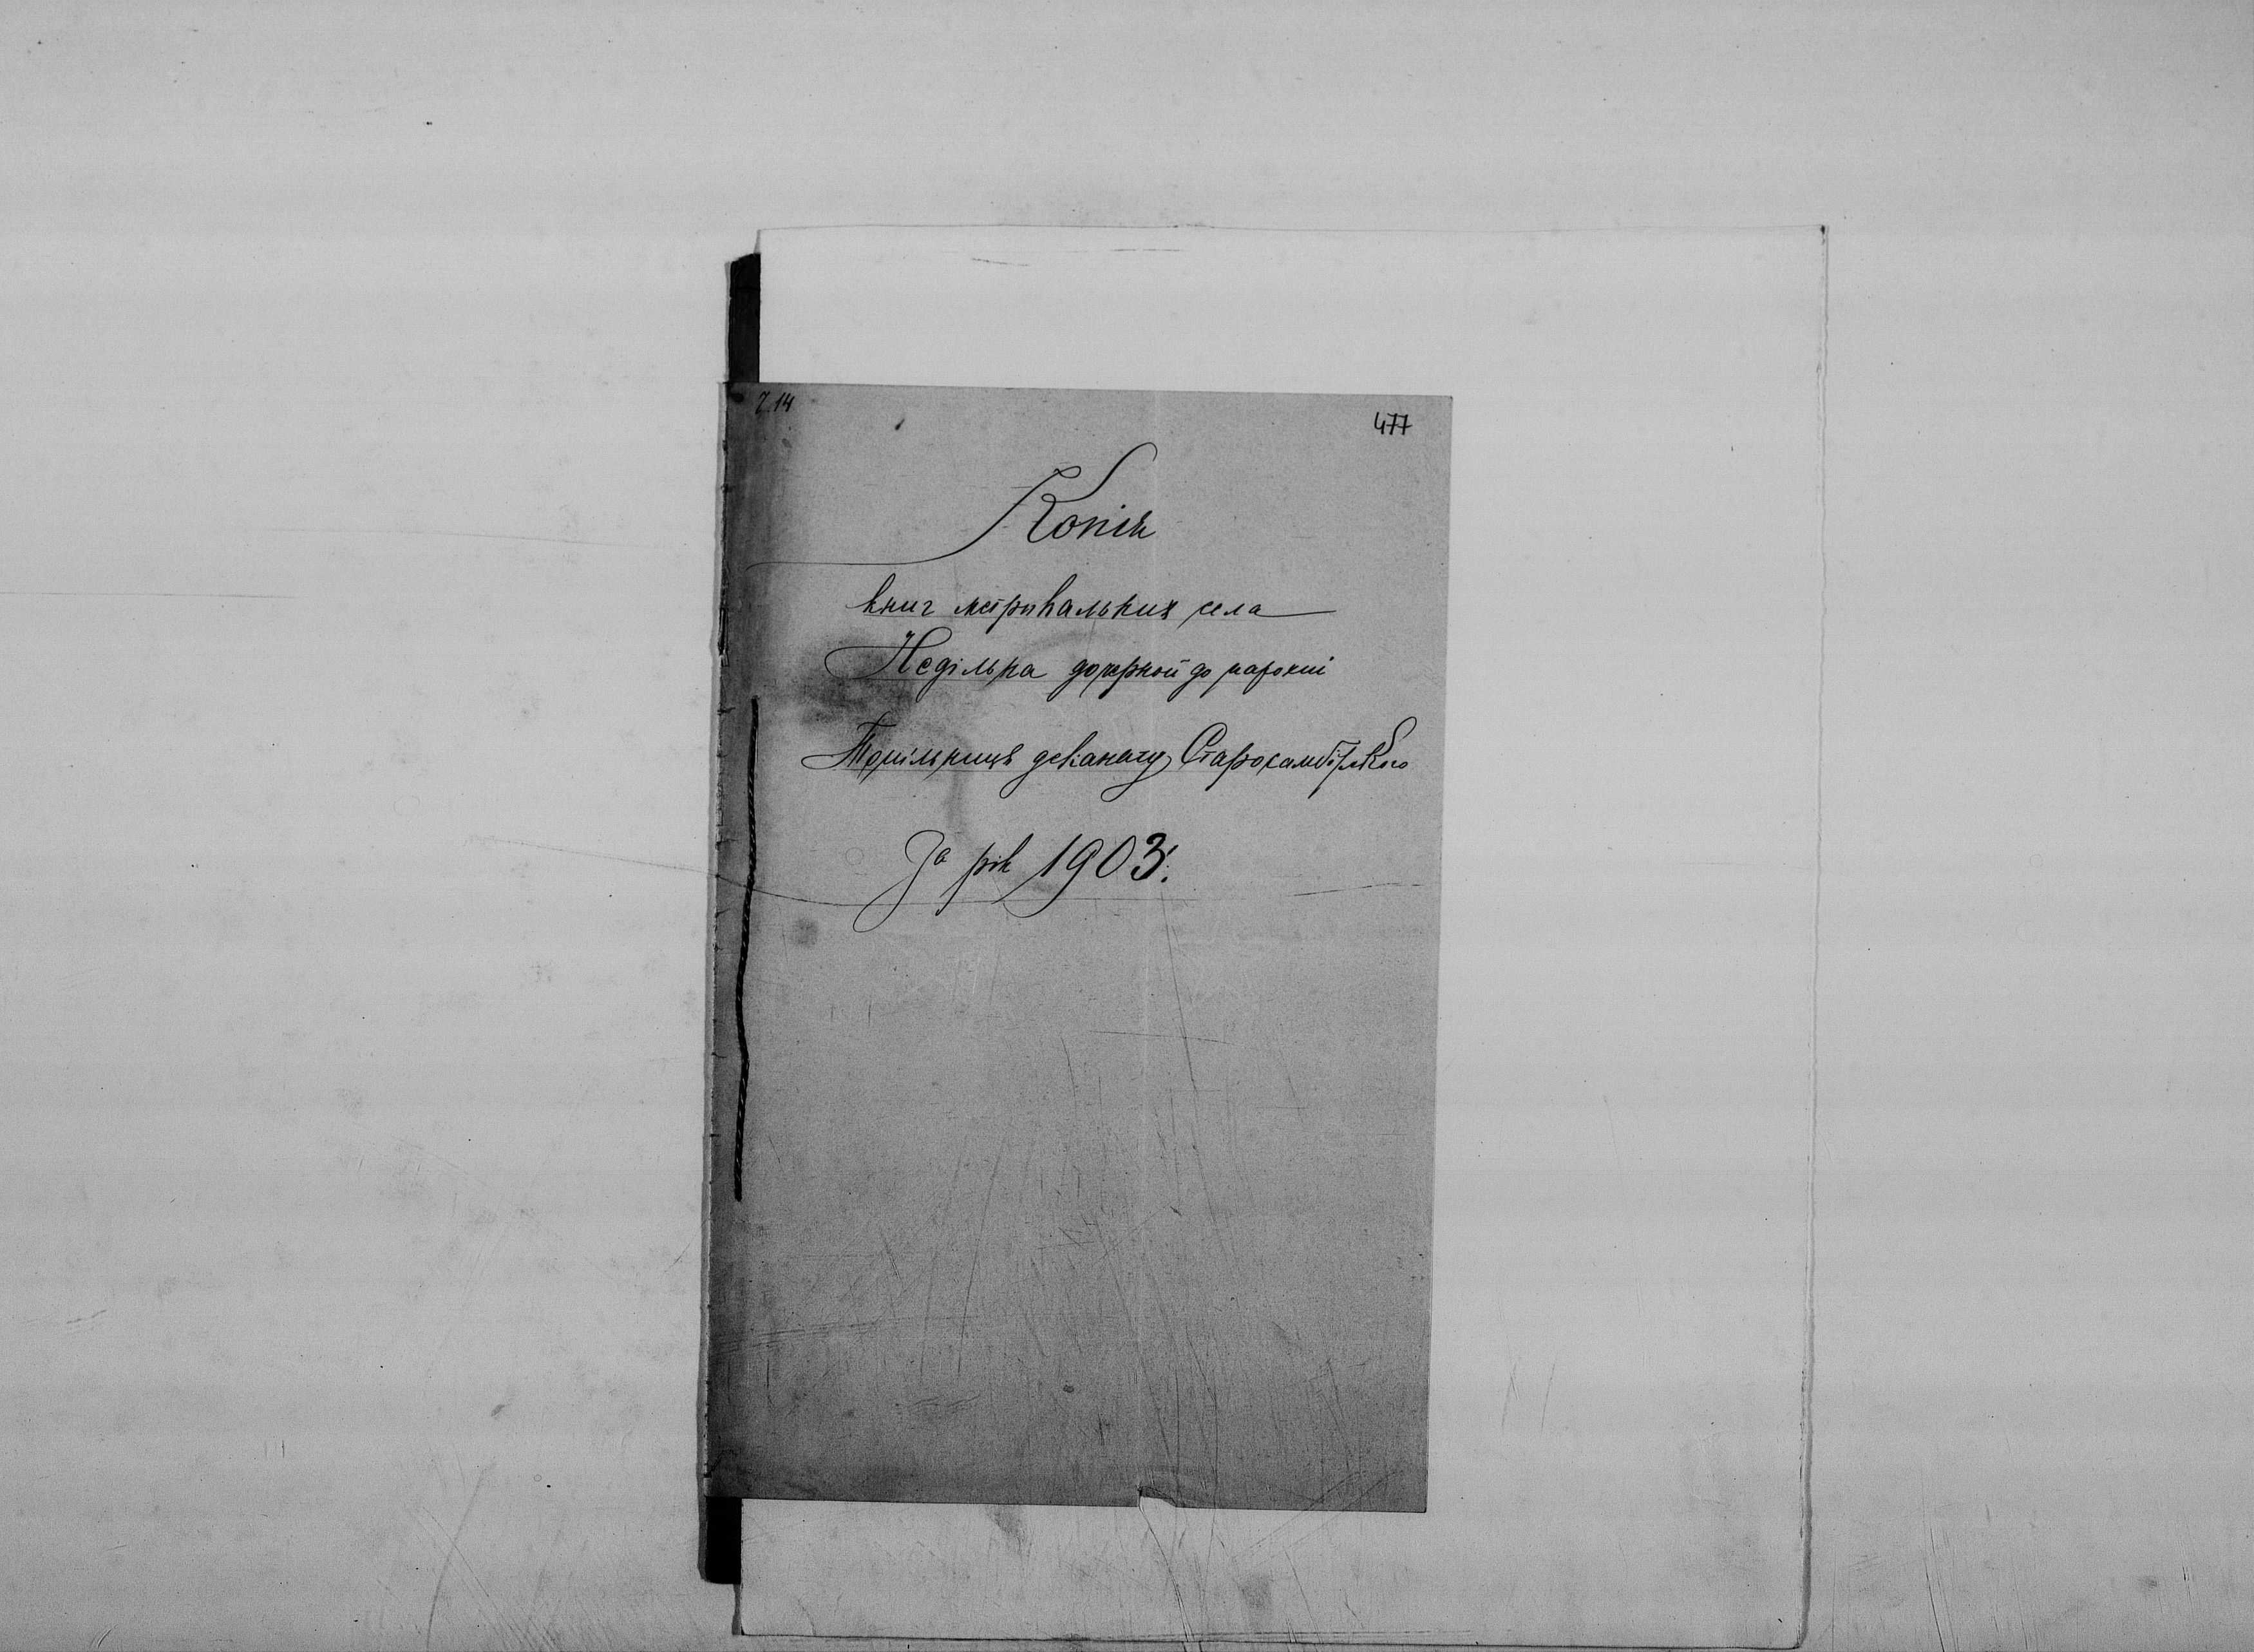 Ч. 14
477
Копія
книг метрикальних села
Недільна дочерной до парохиі
Топільниця деканату Старосамбірского
За рік 1903.